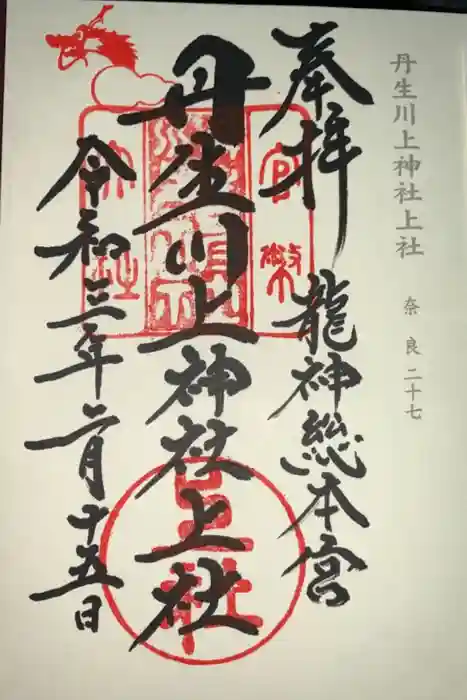 丹生川上神社上社
奈良二十七
奉拝
龍神総本宮
丹生川上神社上社
令和三年二月十五日